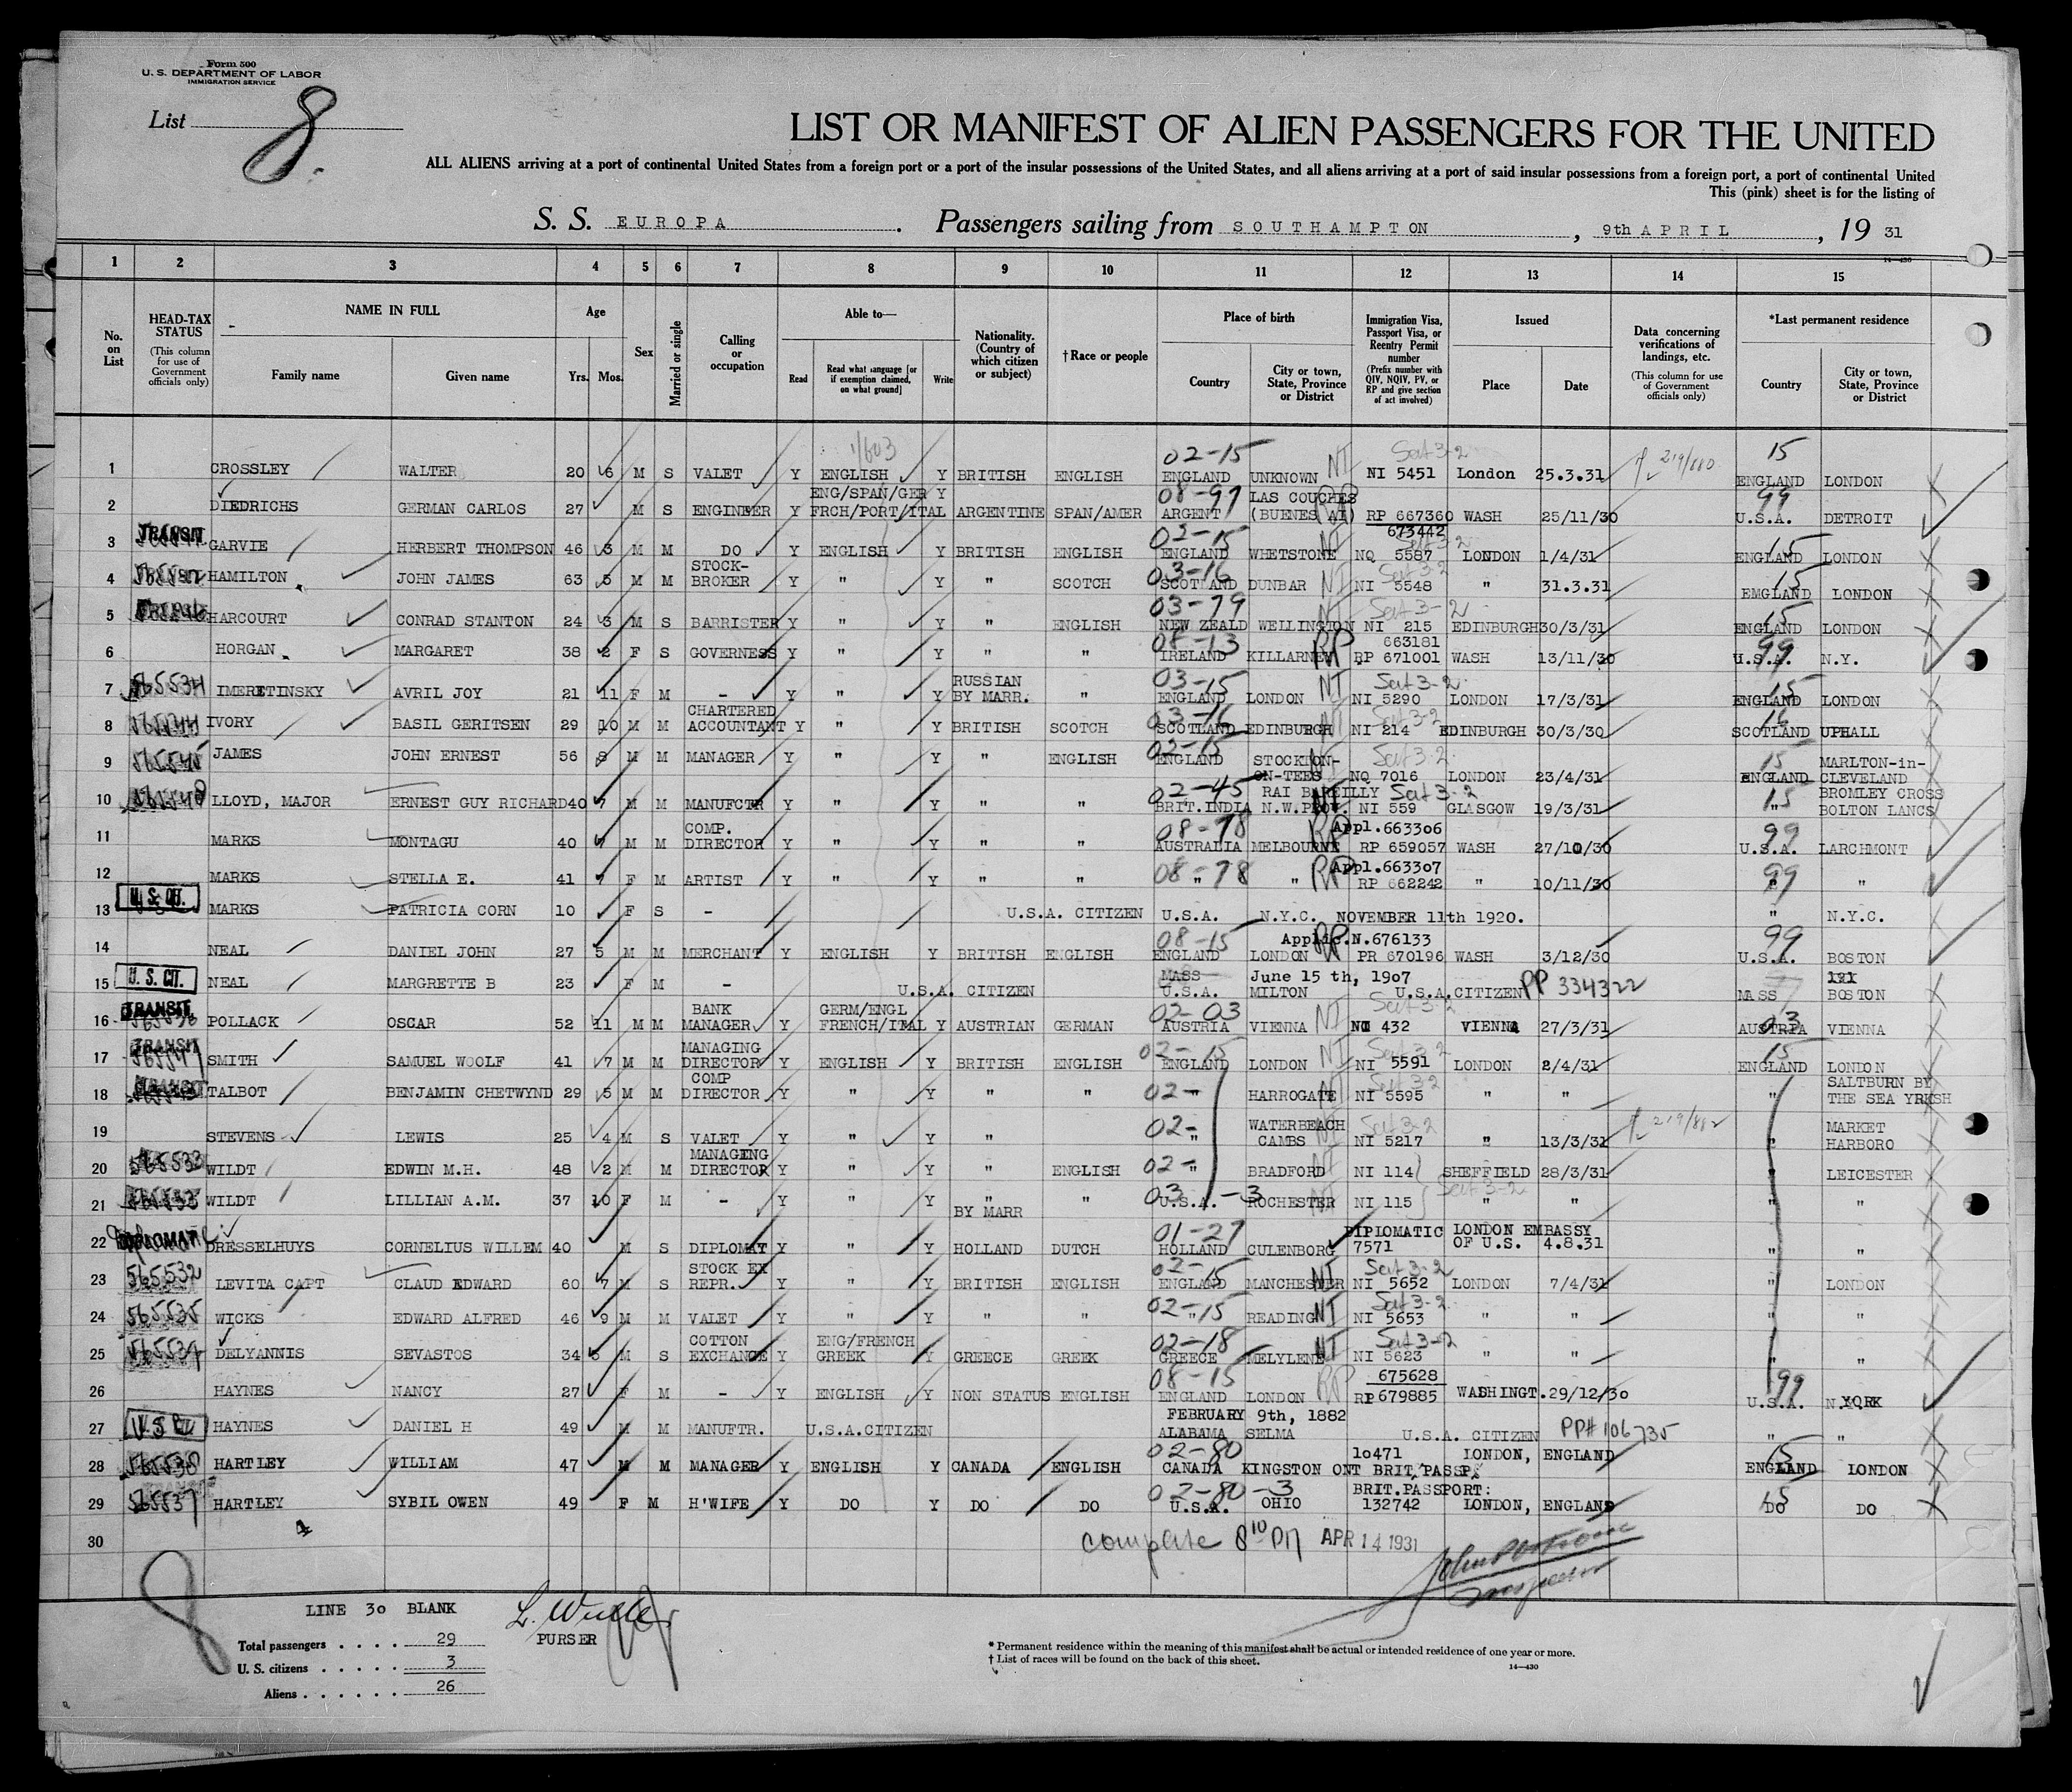 Form 500
U. S. DEPARTMENT OF LABOR
IMMIGRATION SERVICE
List 8.
LIST OR MANIFEST OF ALIEN PASSENGERS FOR THE UNITED
ALL ALIENS arriving at a port of continental United States from a foreign port or a port of the insular possessions of the United States, and all aliens arriving at a port of said insular possessions from a foreign port, a port of continental United
This (pink) sheet is for the listing of
S. S. EUROPA. Passengers sailing from SOUTHAMPTON, 9th APRIL, 19 31
14-430
1 2 3 4 5 6 7 8 9 10 11 12 13 14 15
No. on List
HEAD-TAX STATUS (This column for use of Government officials only)
NAME IN FULL
Family name Given name
Age Yrs. Mos.
Sex
Married or single
Calling or occupation
Able to—
Read Read what language [or if exemption claimed, on what ground] Write
Nationality. (Country of which citizen or subject)
†Race or people
Place of birth
Country City or town, State, Province or District
Immigration Visa, Passport Visa, or Reentry Permit number (Prefix number with QIV, NQIV, PV, or RP and give section of act involved)
Issued
Place Date
Data concerning verifications of landings, etc. (This column for use of Government officials only)
*Last permanent residence
Country City or town, State, Province or District
1/603
02-15 Sect 3-2 15
1 CROSSLEY WALTER 20 6 M S VALET Y ENGLISH Y BRITISH ENGLISH ENGLAND UNKNOWN NI NI 5451 London 25.3.31 219/880 ENGLAND LONDON
ENG/SPAN/GER Y 08-97 LAS COUCHES 99
2 DIEDRICHS GERMAN CARLOS 27 M S ENGINEER Y FRCH/PORT/ITAL ARGENTINE SPAN/AMER ARGENT (BUENES AI) RP RP 667360 WASH 25/11/30 U.S.A. DETROIT
673442
TRANSIT 02-15 NI Sect 3-2 15
3 GARVIE HERBERT THOMPSON 46 3 M M DO Y ENGLISH Y BRITISH ENGLISH ENGLAND WHETSTONE NQ 5587 LONDON 1/4/31 ENGLAND LONDON
STOCK- 03-16 Sect 3-2 15
4 HAMILTON JOHN JAMES 63 5 M M BROKER Y " Y " SCOTCH SCOTLAND DUNBAR NI NI 5548 " 31.3.31 EMGLAND LONDON
03-79 NI Sect 3-2 15
5 HARCOURT CONRAD STANTON 24 3 M S BARRISTER Y " Y " ENGLISH NEW ZEALD WELLINGTON NI 215 EDINBURGH 30/3/31 ENGLAND LONDON
08-13 663181 99
6 HORGAN MARGARET 38 2 F S GOVERNESS Y " Y " " IRELAND KILLARNEY RP RP 671001 WASH 13/11/30 U.S.A. N.Y.
565534 RUSSIAN 03-15 NI Sect 3-2 15
7 IMERETINSKY AVRIL JOY 21 11 F M - Y " Y BY MARR. " ENGLAND LONDON NI 5290 LONDON 17/3/31 ENGLAND LONDON
CHARTERED 03-16 NI Sect 3-2 16
8 IVORY BASIL GERITSEN 29 10 M M ACCOUNTANT Y " Y BRITISH SCOTCH SCOTLAND EDINBURGH NI 214 EDINBURGH 30/3/30 SCOTLAND UPHALL
02-15 Sect 3-2 15
9 JAMES JOHN ERNEST 56 8 M M MANAGER Y " Y " ENGLISH ENGLAND STOCKTON-ON-TEES NQ 7016 LONDON 23/4/31 ENGLAND MARLTON-in-CLEVELAND
02-45 RAI BAREILLY Sect 3-2 15 BROMLEY CROSS
10 LLOYD, MAJOR ERNEST GUY RICHARD 40 7 M M MANUFCTR Y " Y " " BRIT.INDIA N.W.PROV. NI 559 GLASGOW 19/3/31 " BOLTON LANCS
COMP. 08-78 RP Appl.663306 99
11 MARKS MONTAGU 40 7 M M DIRECTOR Y " Y " " AUSTRALIA MELBOURNE RP 659057 WASH 27/10/30 U.S.A. LARCHMONT
08-78 RP Appl.663307 99
12 MARKS STELLA E. 41 7 F M ARTIST Y " Y " " " " RP 662242 " 10/11/30 " "
U. S. CIT.
13 MARKS PATRICIA CORN 10 F S - U.S.A. CITIZEN U.S.A. N.Y.C. NOVEMBER 11th 1920. " N.Y.C.
08-15 RP Applic.N.676133 99
14 NEAL DANIEL JOHN 27 5 M M MERCHANT Y ENGLISH Y BRITISH ENGLISH ENGLAND LONDON PR 670196 WASH 3/12/30 U.S.A. BOSTON
U. S. CIT. MASS June 15 th, 1907 PP 334322
15 NEAL MARGRETTE B 23 F M - U.S.A. CITIZEN U.S.A. MILTON U.S.A.CITIZEN MASS BOSTON
TRANSIT BANK GERM/ENGL 02-03 NI Sect 3-2 03
16 POLLACK OSCAR 52 11 M M MANAGER Y FRENCH/ITAL Y AUSTRIAN GERMAN AUSTRIA VIENNA NI 432 VIENNA 27/3/31 AUSTRIA VIENNA
TRANSIT MANAGING 02-15 NI Sect 3-2 15
17 SMITH SAMUEL WOOLF 41 7 M M DIRECTOR Y ENGLISH Y BRITISH ENGLISH ENGLAND LONDON NI 5591 LONDON 2/4/31 ENGLAND LONDON
TRANSIT COMP 02- NI Sect 3-2 SALTBURN BY
18 TALBOT BENJAMIN CHETWYND 29 5 M M DIRECTOR Y " Y " " " HARROGATE NI 5595 " " " THE SEA YRKSH
02- WATERBEACH Sect 3-2 219/882 MARKET
19 STEVENS LEWIS 25 4 M S VALET Y " Y " " CAMBS NI 5217 " 13/3/31 " HARBORO
565533 MANAGING 02-
20 WILDT EDWIN M.H. 48 2 M M DIRECTOR Y " Y " ENGLISH " BRADFORD NI 114 SHEFFIELD 28/3/31 " LEICESTER
03 -3 Sect 3-2
21 WILDT LILLIAN A.M. 37 10 F M - Y " Y " BY MARR " U.S.A. ROCHESTER NI 115 " " " "
DIPLOMATIC 01-27 DIPLOMATIC LONDON EMBASSY
22 DRESSELHUYS CORNELIUS WILLEM 40 M S DIPLOMAT Y " Y HOLLAND DUTCH HOLLAND CULENBORG 7571 OF U.S. 4.8.31 " "
565532 STOCK EX 02-15 NI Sect 3-2
23 LEVITA CAPT CLAUD EDWARD 60 7 M S REPR. Y " Y BRITISH ENGLISH ENGLAND MANCHESTER NI 5652 LONDON 7/4/31 " LONDON
565535 02-15 NI Sect 3-2
24 WICKS EDWARD ALFRED 46 9 M M VALET Y " Y " " " READING NI 5653 " " " "
COTTON ENG/FRENCH 02-18 NI Sect 3-2
25 DELYANNIS SEVASTOS 34 5 M S EXCHANGE Y GREEK Y GREECE GREEK GREECE MELYLENE NI 5623 " " " "
08-15 RP 675628 99
26 HAYNES NANCY 27 F M - Y ENGLISH Y NON STATUS ENGLISH ENGLAND LONDON RP 679885 WASHINGT. 29/12/30 U.S.A. N.YORK
FEBRUARY 9th, 1882 PP# 106735
27 HAYNES DANIEL H 49 M M MANUFTR. U.S.A.CITIZEN ALABAMA SELMA U.S.A. CITIZEN " "
565538 02-80 10471 LONDON, ENGLAND 15
28 HARTLEY WILLIAM 47 M M MANAGER Y ENGLISH Y CANADA ENGLISH CANADA KINGSTON ONT BRIT PASSP. ENGLAND LONDON
565537 02-80-3 BRIT.PASSPORT: 15
29 HARTLEY SYBIL OWEN 49 F M H'WIFE Y DO Y DO DO U.S.A. OHIO 132742 LONDON, ENGLAND DO DO
30 complete 8 10 PM APR 14 1931
Inspector
8
LINE 30 BLANK
PURSER
Total passengers . . . . 29
U. S. citizens . . . . . 3
Aliens . . . . . . 26
* Permanent residence within the meaning of this manifest shall be actual or intended residence of one year or more.
† List of races will be found on the back of this sheet.
14—430